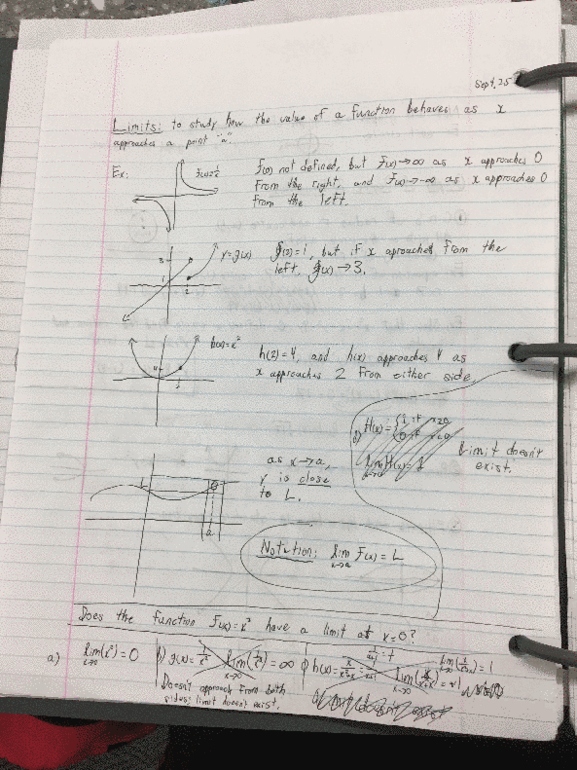 Sept. 25
Limits: to study how the value of a function behaves as x
approaches a point "a".
Ex:
f(x)=1/x
f(0) not defined, but f(x)→∞ as x approaches 0
from the right, and f(x)→-∞ as x approaches 0
from the left.
3
1
2
y=g(x)
g(2)=1, but if x aproaches from the
left, g(x)→3.
h(x)=x²
h(2)=4, and h(x) approaches 4 as
x approaches 2 from either side.
d) H(x)={1 if x≥0
0 if x<0
lim H(x)=
Limit doesn't
exist.
as x→a,
y is close
to L.
L
a
Notation: lim f(x)=L
x→a
Does the function f(x)=x² have a limit at x=0?
a) lim(x²)=0
x→0
b) g(x)=1/x²
lim(1/x²)=∞
x→0
Doesn't approach from both
sides; limit doesn't exist.
h(x)=
x→0
=1